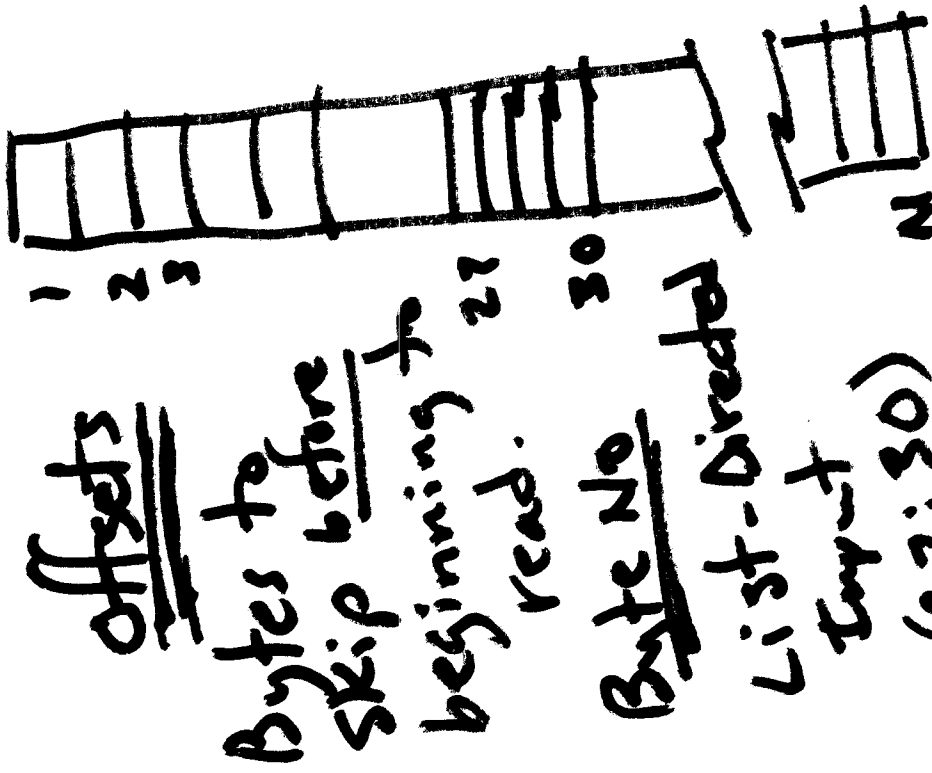 1
2
3
27
30
N
Offsets
Bytes to
skip before
beginning to
read.
Byte No
List-Directed
Input